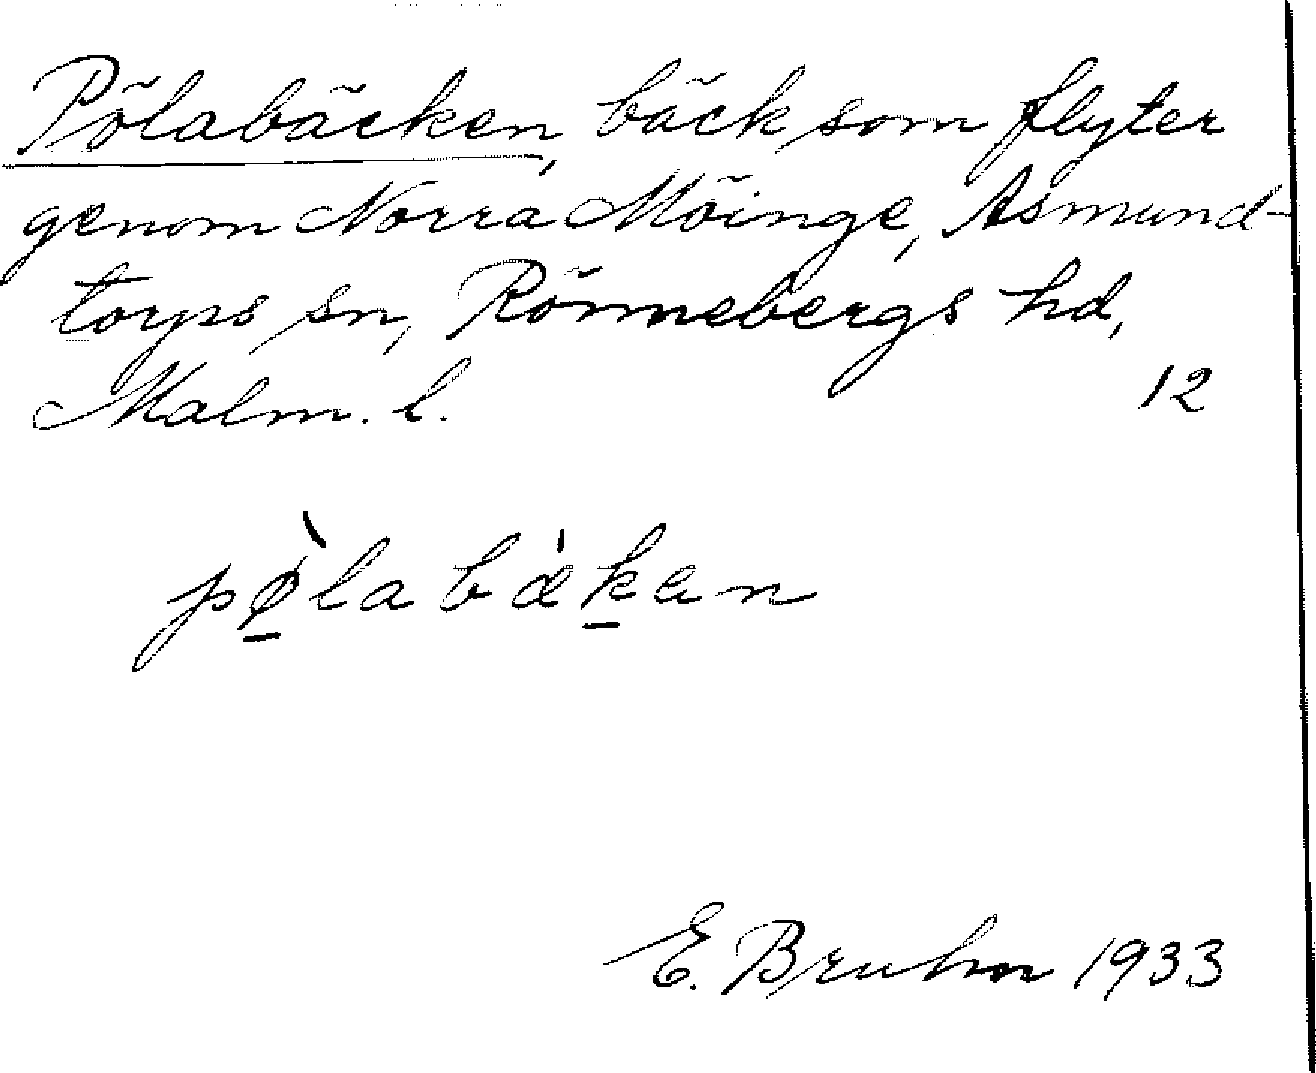 Pölabäcken, bäck som flyter
genom Norra Möinge, Asmund-
torps sn, Rönnebergs hd,
Malm. l. 12
pø̀labækan
E. Bruhn 1933